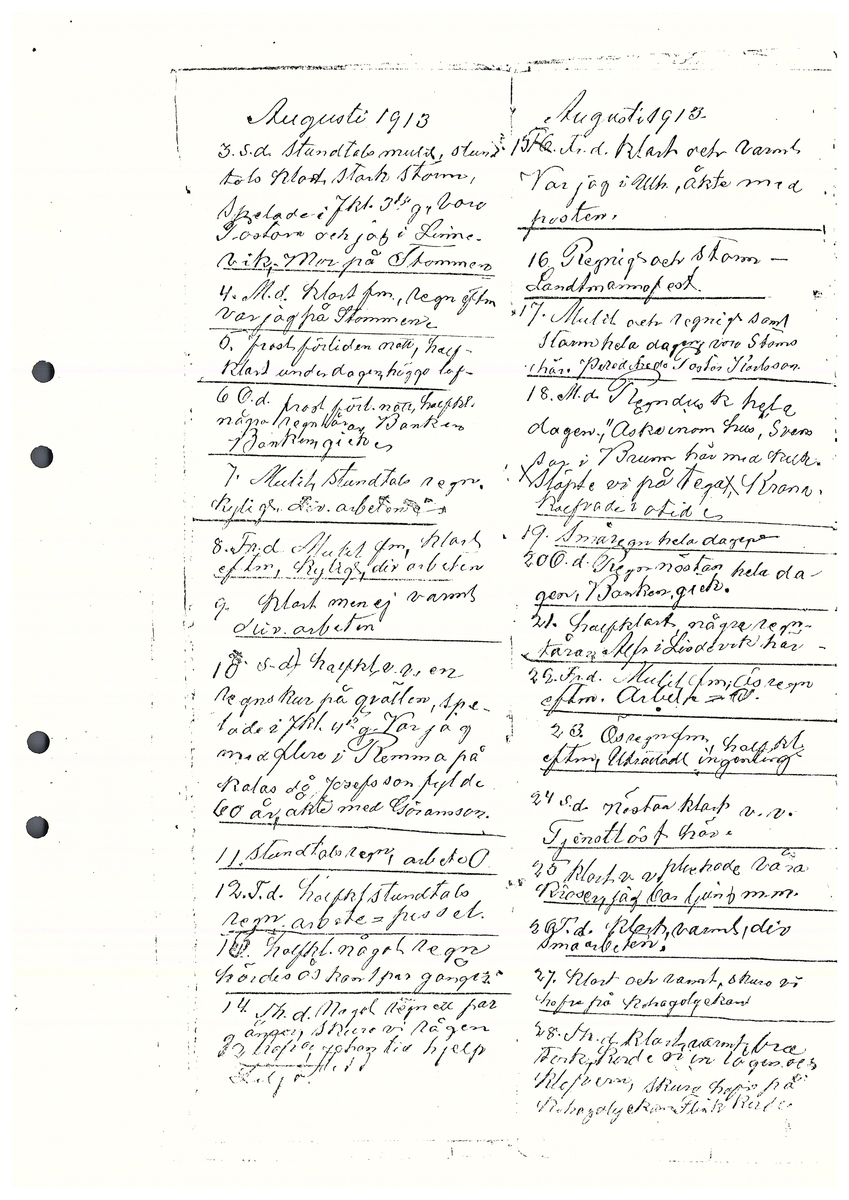 Augusti 1913
3. S.d. Stundtals mulit, stund-
tals klart stark storm,
Spelade i Jkl. 3dj g, voro
Tostora och jag i Linne-
vik, Mor på Stommen
4. M.d. Klart fm., regn eftm
var jag på Stommene
5. frost förliden natt, half-
klart under dagen, höggo löf-
6 O.d. frost förl. natt, halfkl.
några regntårar, Banken
Banken, gick
7. Mulit, stundtals regn.
kyligt. Div. arbeten
8. Fr.d. Mulit fm, klart
eftm, kyligt, div arbeten
9. Klart men ej varmt
div. arbeten
10. S.d. halfkl. v.v. en
regnskur på qvällen, spe-
lade i Jkl. 4de g. Var jag
med flere i Remma på
kalas då Josefsson fylde
60 år, åkte med Göransson.
11. Stundtals regn, arbete O
12. T.d. halfkl stundtals
regn. arbete = pussel.
13. halfkl. något regn
hördes åskan 1 par gånger
14. Th.d. Något regn ett par
gånger, skuro vi rågen
hjelp
Augusti 1913.
15 Fr.d. Klart och varmt
Var jag i Ulh., åkte med
posten.
16 Regnigt och Storm —
Landtmannafest.
17. Mulit och regnigt samt
Storm hela dagen, voro Stoms
här. Tostor Karlsson
18. M.d. Regndusk hela
dagen, "Aska inom hus", Sven
son i Brunn här med
Stöpte vi på Tegax, Krann.
19. Småregn hela dagen
20 O.d. Regn nästan hela da-
gen, Banken, gick.
21. halfklart, några regn-
tårar, Alfr i Lindevik här -
22. Fr.d. Mulit fm, Ösregn
eftm. Arbete = O.
23. Ösregn fm, halfkl.
eftm, Uträttadt ingenting
24 S.d. Nästan klart v.v.
Tjenstlöst här.
25 Klart v.v plockade våra
Kröser, jag bar ljung m.m.
26 T.d. Klart, varmt, div
småarbeten.
27. Klart och varmt, skuro vi
hafre på Kohagalyckan
28. Th.d. Klart, varmt, bra
Tork, Körde vi in rågen och
Klöfvern, skuro hafre på
Kohagalyckan Flink Körde